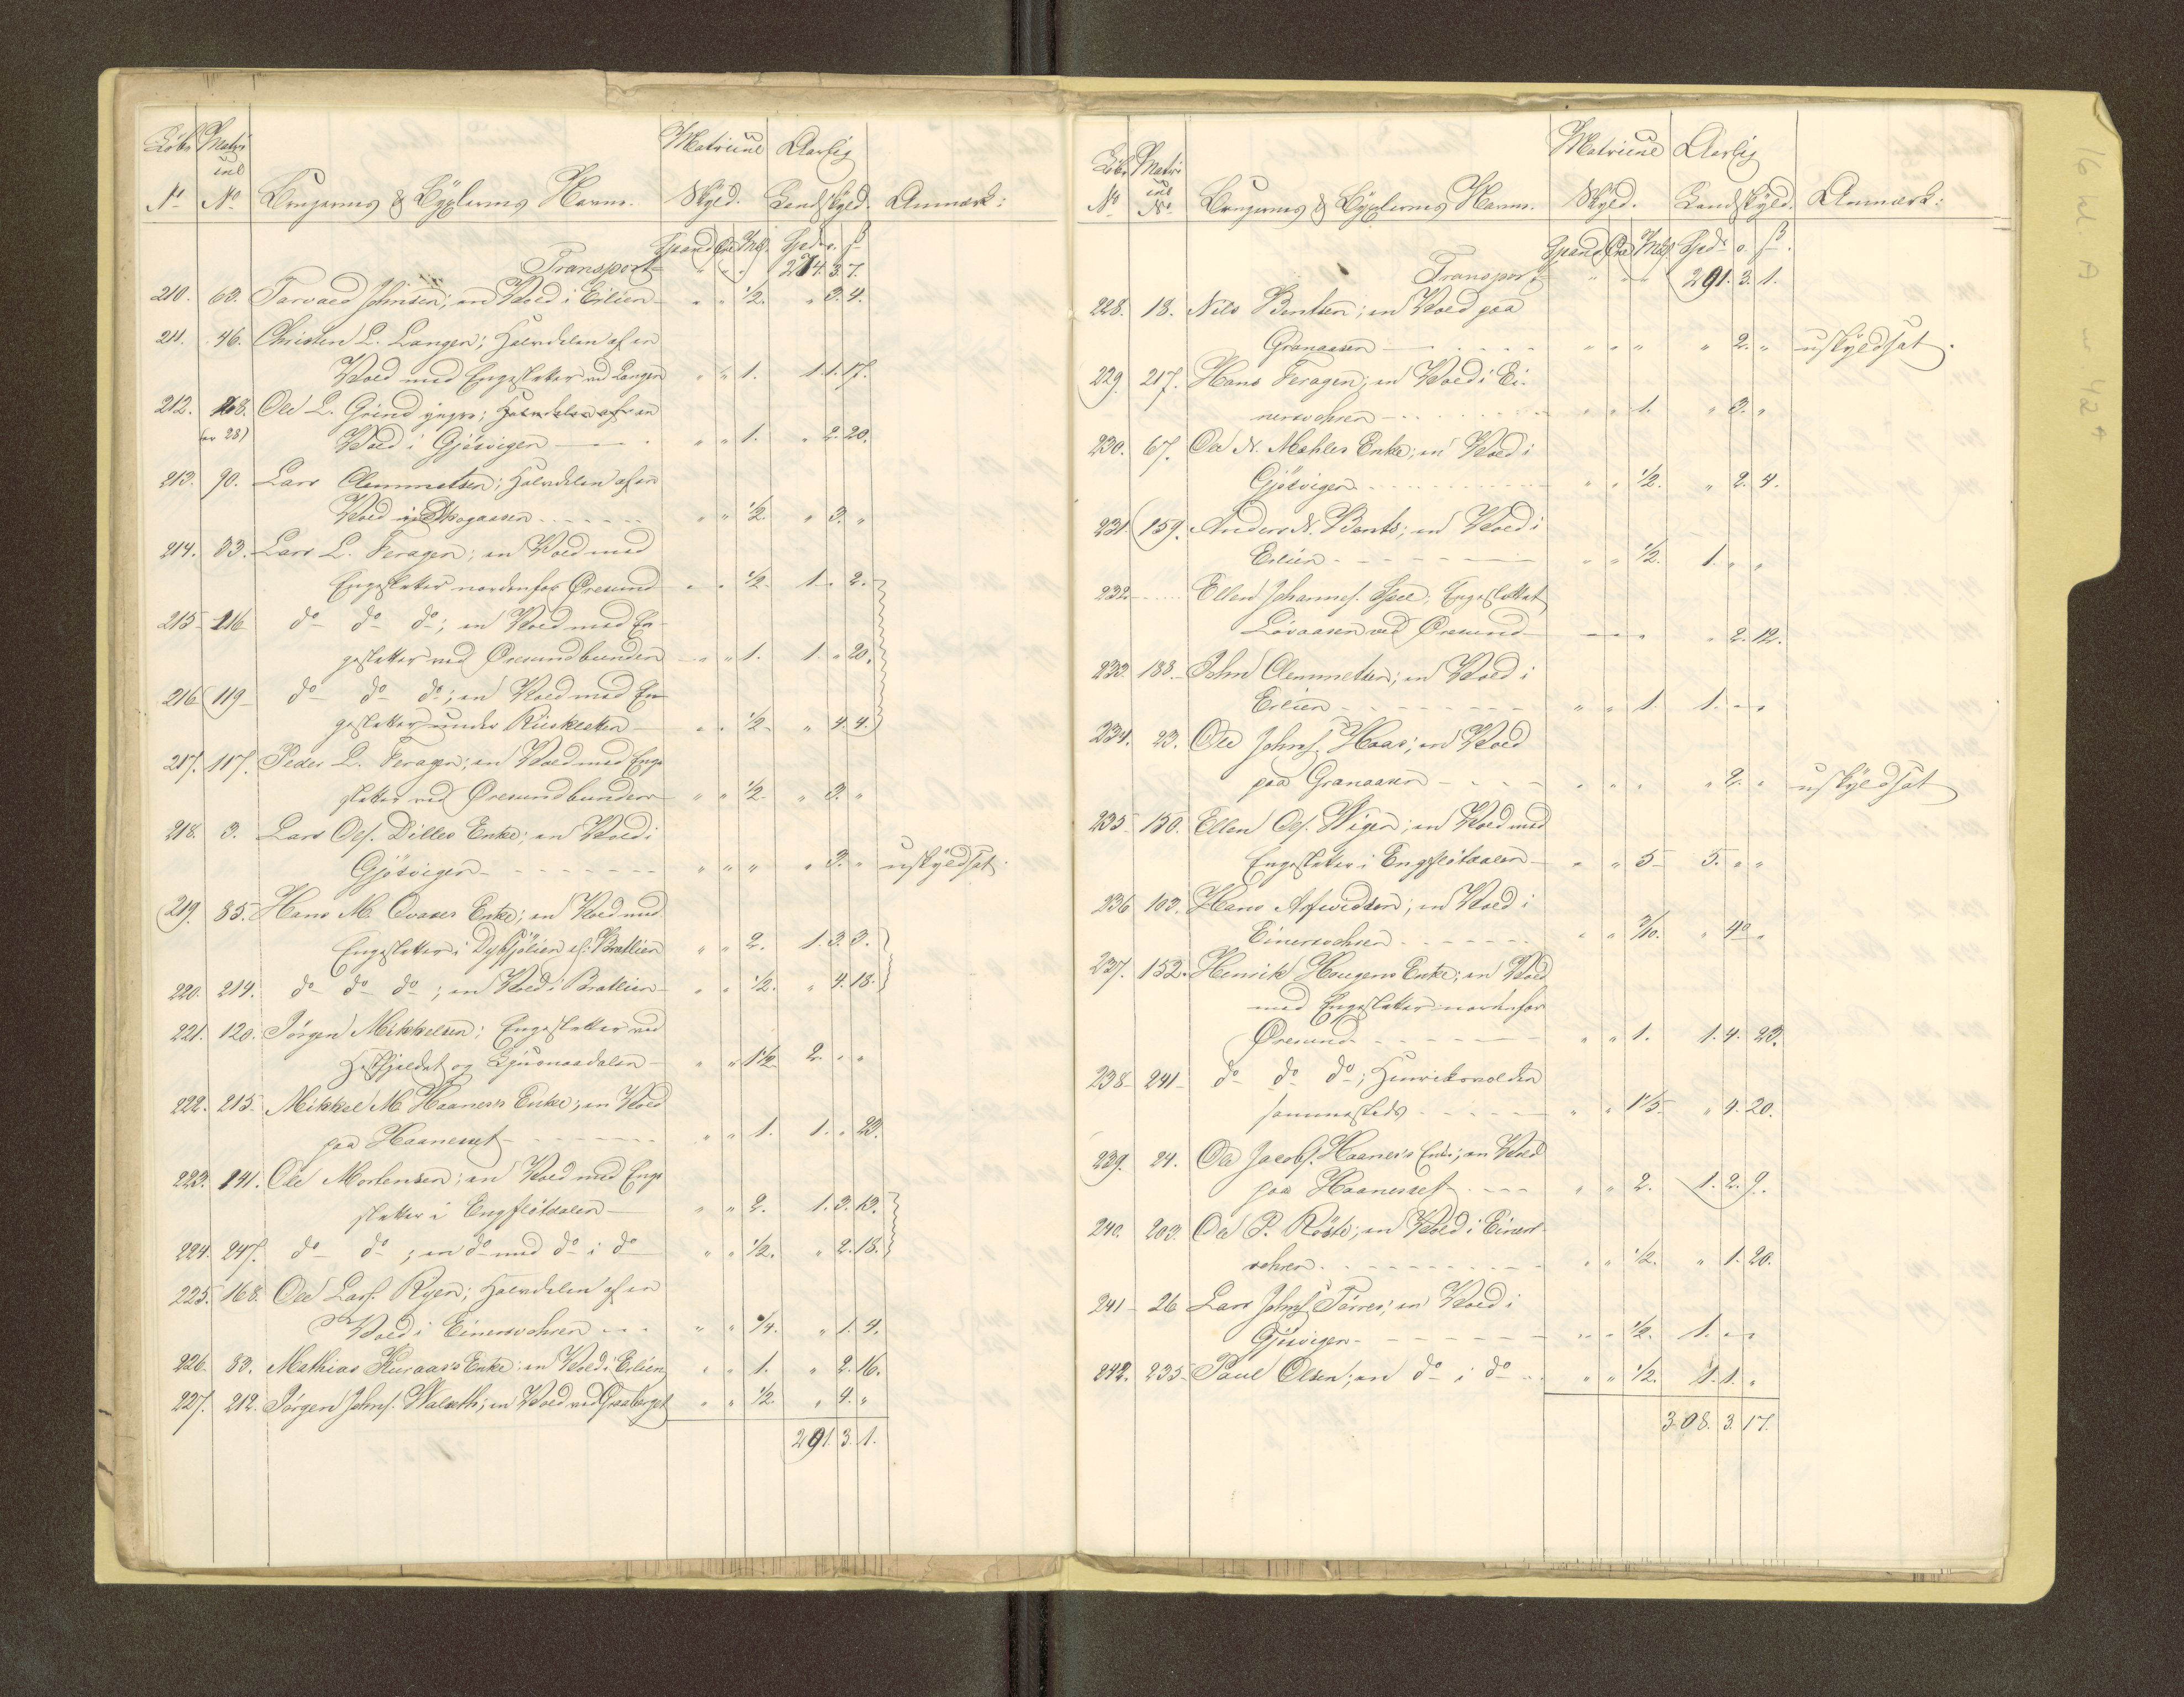 Löbe Matri Matricul Aarlig
cul
No No Brugernes & Byxlernes Navne. Skyld. Landskyld. Anmærk:
Spand Øre Mkl. Spd. o. ß
Transport " " " 274. 3. 7.
210. 63. Tarvald Johnsen; en Vold i Erlien " " 1/2. " 3. 4.
211. 46. Christen L. Langen; Halvdelen af en
Vold med Engeslætter ved Langen " " 1. 1. 1. 17.
212. 168. Ole L. Grind yngre; Halvdelen af en
(or 28) Vold i Gjösvigen " " 1. " 2. 20.
213. 90. Lars Clemmetsen; Halvdelen af en
Vold i Skogaasen " " 1/2. " 3. "
214. 33. Lars L. Feragen; en Vold med
Engeslætter nordenfor Øresund " " 1/2. 1. " 2.
215. 116. do do do; en Vold med En-
geslætter ved Øresundbunden " " 1. 1. " 20.
216. 119. do do do; en Vold med En-
geslætter under Rüskletten " " 1/2. " 4. 4.
217. 117. Peder L. Feragen; en Vold med Enge
slætter ved Øresundbunden " " 1/2. " 3. "
218. 3. Lars Ols. Dilles Enke; en Vold i
Gjösvigen " " " " 3. " uskyldsat.
219. 85. Hans M. Qvaaes Enke; en Vold med
Engeslætter i Dybsjölien ef: Bratlien " " 2. 1. 3. 3.
220. 214. do do do; en Vold i Bratlien " " 1/2. " 4. 18.
221. 120. Jörgen Mikkelsen; Engeslætter ved
Hestfjeldet og Ljusnaadalen " " 1 1/2. 2. " "
222. 215. Mikkel M. Haaness's Enke; en Vold
paa Haanesset " " 1. 1. " 23.
223. 141. Ole Mortensen; en Vold med Enge
slætter i Engflötdalen " " 2. 1. 3. 13.
224. 247. do do; en do med do i do " " 1/2. " 2. 18.
225. 168. Ole Lars. Ryen; Halvdelen af en
Vold i Einersvohren " " 3/4. " 1. 4.
226. 83. Mathias Kuraas's Enke; en Vold i Erlien " " 1. " 2. 16.
227. 212. Jörgen Johns. Walseth; en Vold ved Graaberget " " 1/2. " 4. "
291. 3. 1.
Löbe Matri Matricul Aarlig
cul
No No Brugernes & Byxlernes Navne. Skyld. Landskyld. Anmærk:
Spand Øre Mkl. Spd. o. ß.
Transport " " " 291. 3. 1.
228. 18. Nils Bentsen; en Vold paa
Granaasen " " " " 2. " uskyldsat.
229. 217. Hans Feragen; en Vold i Ei-
nersvohren " " 1. " 3. "
230. 67. Ole N. Mahles Enke; en Vold i
Gjösvigen " " 1/2. " 2. 4.
231. 159. Anders N. Bents; en Vold i
Erlien " " 1/2. 1. " "
232. Ellen Johannes. Spell; Engeslættet
Lövaasen ved Øresund " " " " 2. 12.
233. 188. John Clemmetsen; en Vold i
Erlien " " 1. 1. " "
234. 23. Ole Johns. Haas; en Vold
paa Granaasen " " " " 2. " uskyldsat
235. 150. Ellen Ols. Wigen; en Vold med
Engeslætter i Engflötdalen " " 5. 5. " "
236. 103. Hans Arfvedsen; en Vold i
Einersvohren " " 3/10. " 4. "
237. 152. Henrik Hougens Enke; en Vold
med Engeslætter nordenfor
Øresund " " 1. 1. 4. 20.
238. 241. do do do; Henriksvolden
sammesteds " " 1 1/5. " 4. 20.
239. 24. Ole Jacobs. Haaness's Enke; en Vold
paa Haanesset " " 2. 1. 2. 9.
240. 203. Ole P. Röste; en Vold i Einers-
vohren " " 1/2. " 1. 20.
241. 26. Lars Johns. Torres; en Vold i
Gjösvigen " " 1/2. 1. " "
242. 235. Paul Olsen; en do i do " " 1/2. 1. 1. "
308. 3. 17.